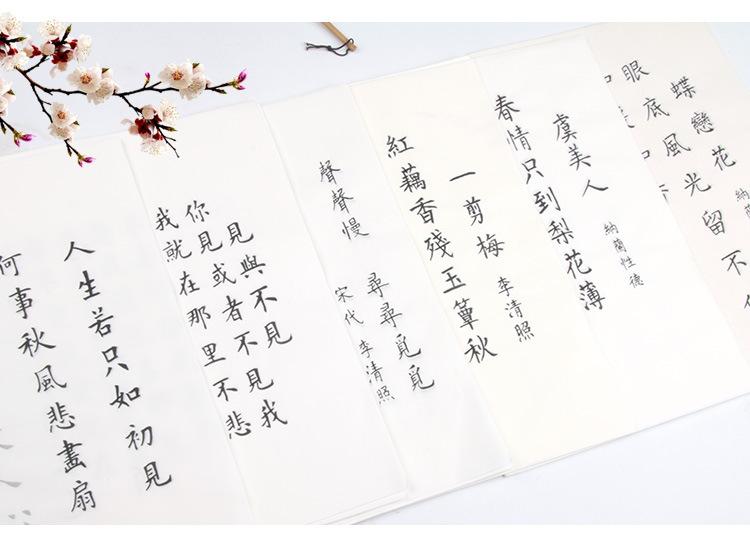 蝶戀花 納
眼底風光留不
虞美人 納蘭性德
春情只到梨花薄
一剪梅 李清照
紅藕香殘玉簟秋
聲聲慢 尋尋覓覓
宋代 李清照
見與不見
你見或者不見我
我就在那里不悲
人生若只如初見
何事秋風悲畫扇